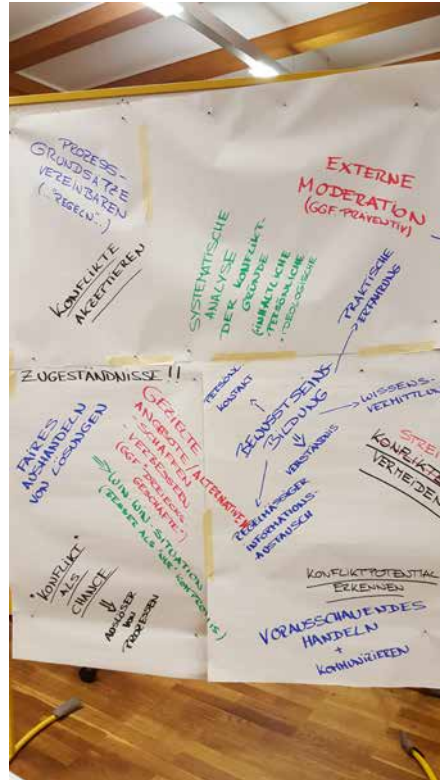 PROZESS-
GRUNDSÄTZE
VEREINBAREN
(„REGELN“..)
KONFLIKTE
AKZEPTIEREN
SYSTEMATISCHE
ANALYSE
DER KONFLIKT-
GRÜNDE
(INHALTLICHE
• PERSÖNLICHE
• IDEOLOGISCHE
EXTERNE
MODERATION
(GGF. PRÄVENTIV)
PRAKTISCHE
ERFAHRUNG
ZUGESTÄNDNISSE !!
FAIRES
AUSHANDELN
VON LÖSUNGEN
GEZIELTE
ANGEBOTE/ALTERNATIVEN
SCHAFFEN
VERBESSERN
(GGF. "DREIECKS-
GESCHÄFTE")
⇒ WIN-WIN-SITUATION
(BESSER ALS "NUR KOMPROMIS")
"KONFLIKT"
ALS
CHANCE
⇓
AUSLÖSER
VON
PROZESSEN
PERSÖNL.
KONTAKT
BEWUSSTSEINS-
BILDUNG
⇓
VERSTÄNDNIS
→ WISSENS-
VERMITTLU
REGELMÄSSIGER
INFORMATIONS-
AUSTAUSCH
STREI
KONFLIKTE
VERMEIDEN
KONFLIKTPOTENTIAL
ERKENNEN
VORAUSSCHAUENDES
HANDELN
+
KOMMUNIZIEREN